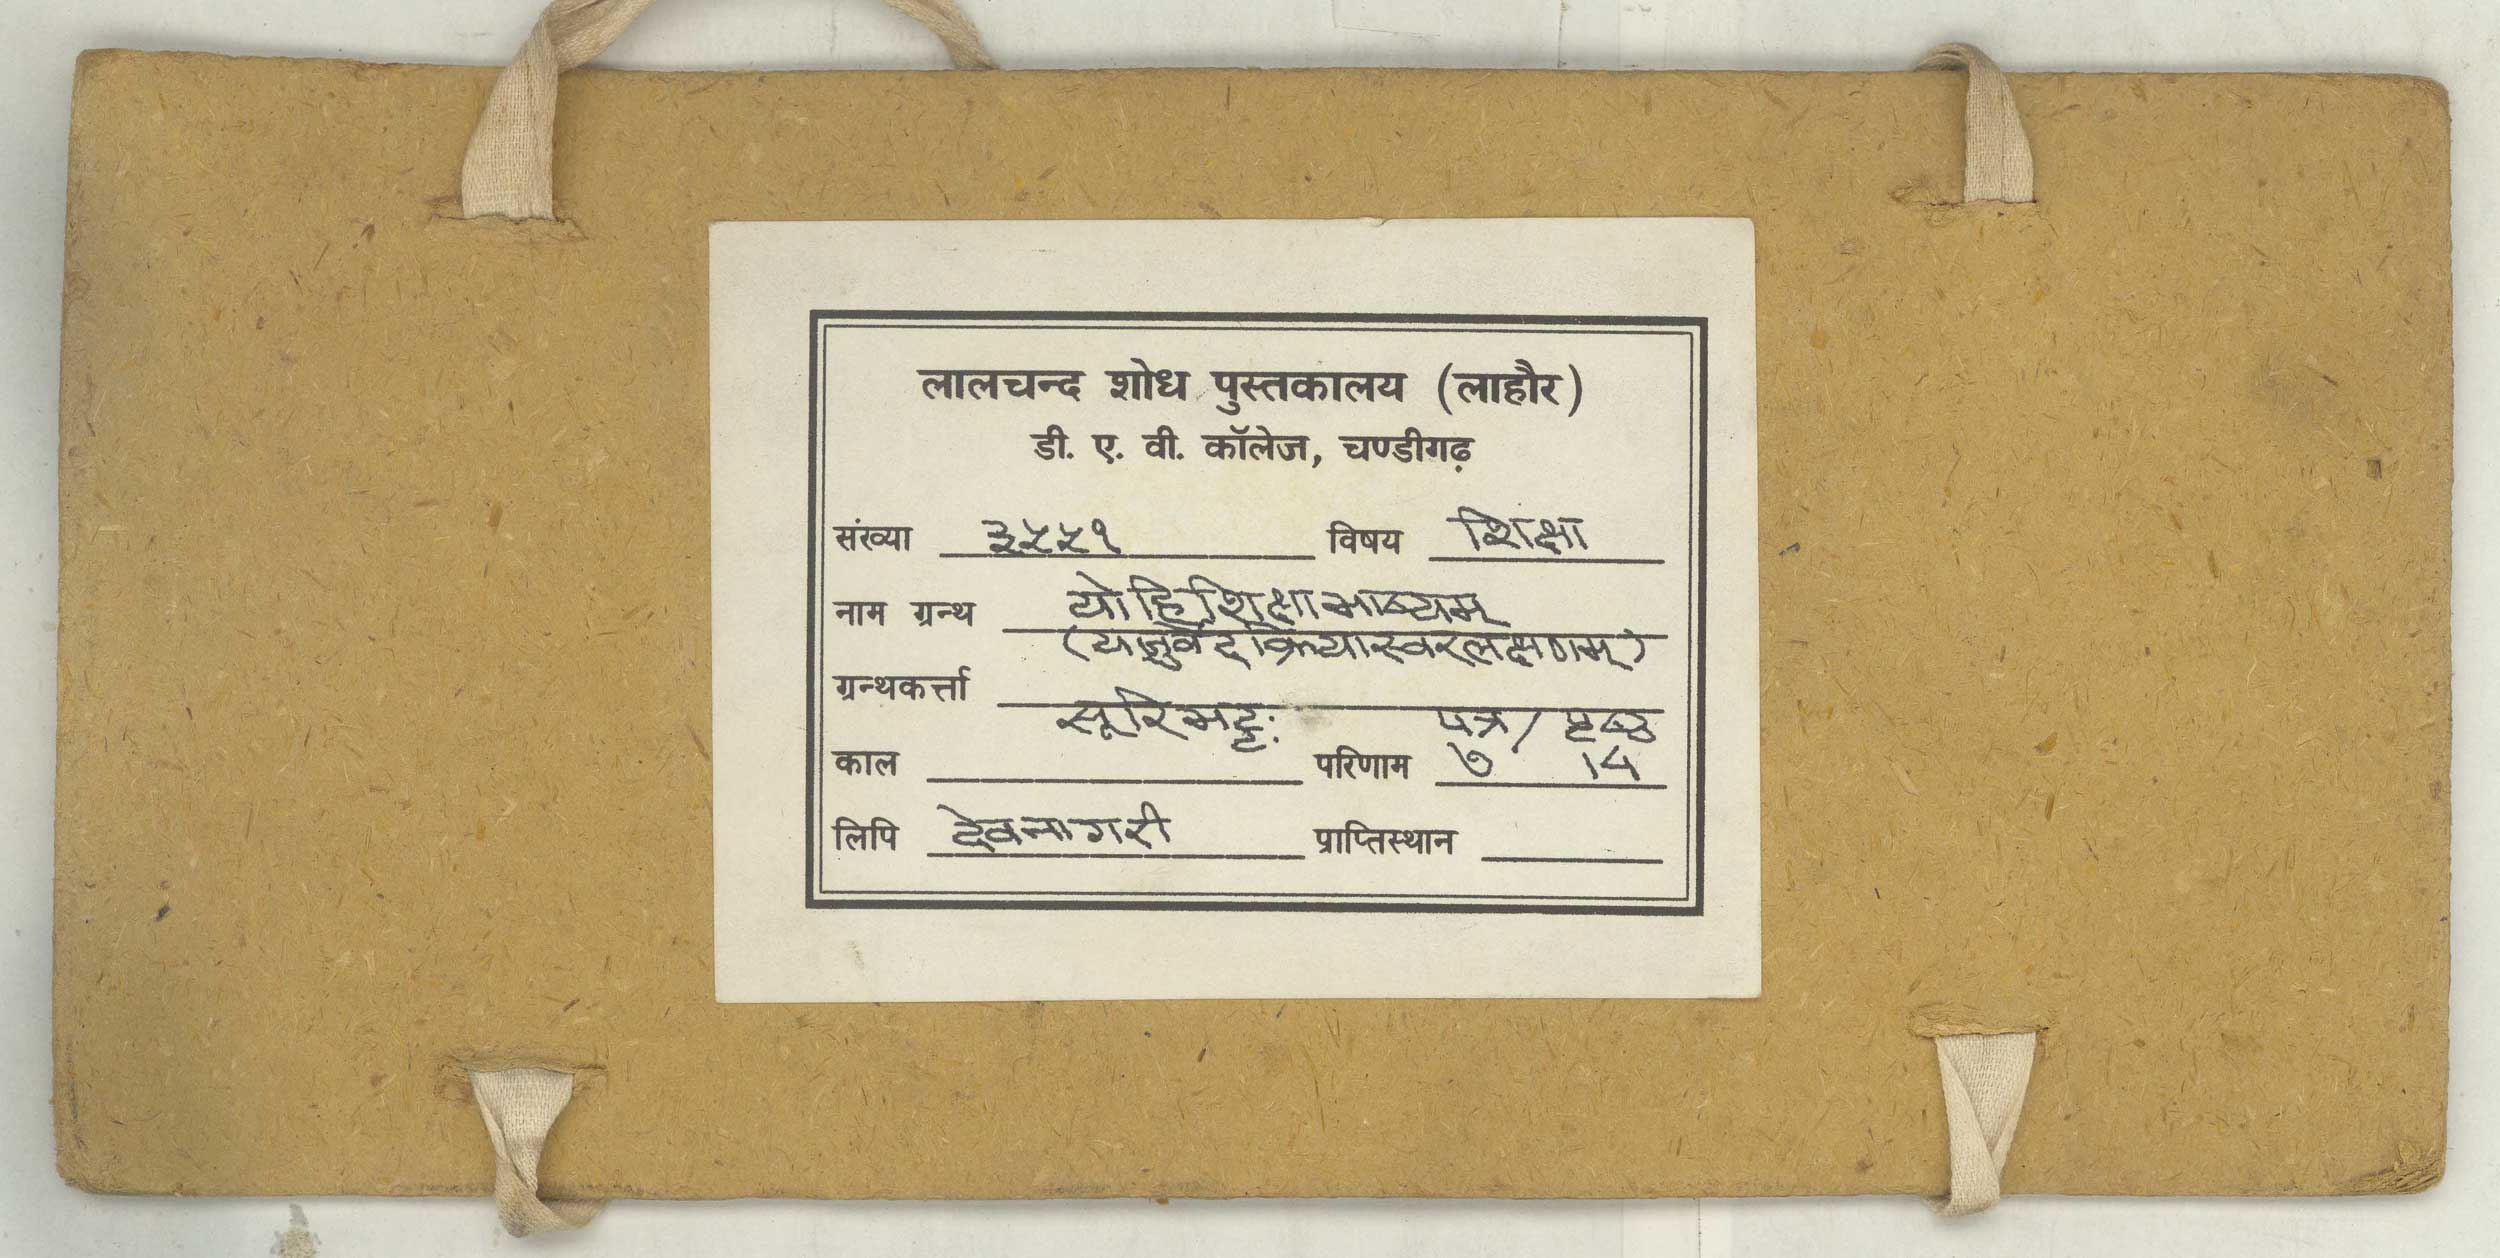 लालचन्द शोध पुस्तकालय (लाहौर)
डी. ए. वी. कॉलेज, चण्डीगढ़
संख्या ३५५१ विषय शिक्षा
नाम ग्रन्थ योहिशिक्षाभाष्यम्
(याजुर्वेदिक्रियास्वरलक्षणम्)
ग्रन्थकर्त्ता
सूरिभट्टः पत्र / पृष्ठ
काल परिणाम ७
लिपि देवनागरी प्राप्तिस्थान